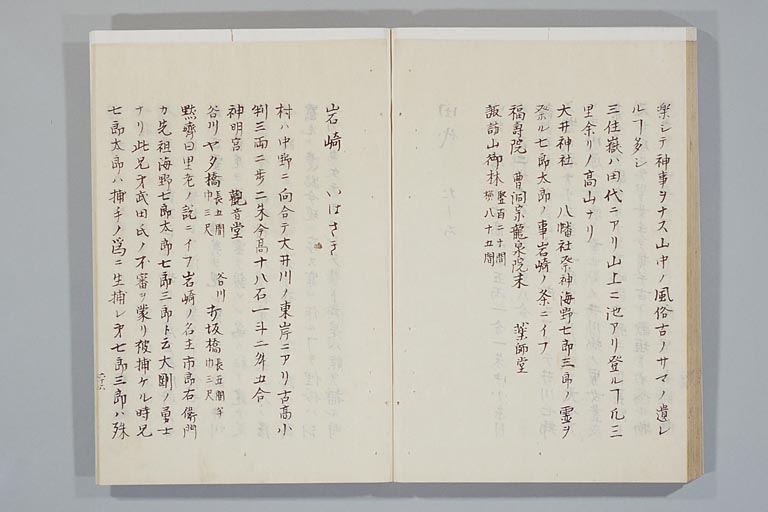 楽シテ神事ヲナス山中ノ風俗古ノサマノ遺レ
ルヿ多シ
三住嶽ハ田代ニアリ山上ニ池アリ登ルヿ凡三
里余リノ高山ナリ
大井神社 八幡社祭神海野七郎三郎ノ霊ヲ
祭ル七郎太郎ノ事岩崎ノ条ニイフ
福壽院ニ曹洞宗龍泉院末 薬師堂
諏訪山御林竪百二十間横八十五間
岩崎 いはさき
村ハ中野ニ向合テ大井川ノ東岸ニアリ古高小
判三両二歩二朱今高十八石一斗二舛五合
神明宮 観音堂
谷川ヤタ橋長五間巾三尺 谷川 坂橋長五間半巾三尺
黙齋曰里老ノ説ニイフ岩崎ノ名主市郎右衛門
カ先祖海野七郎太郎七郎三郎ト云大剛ノ勇士
ナリ此兄弟武田氏ノ不審ヲ蒙リ被捕ケル時兄
七郎太郎ハ捕手ノ為ニ生捕レ弟七郎三郎ハ殊